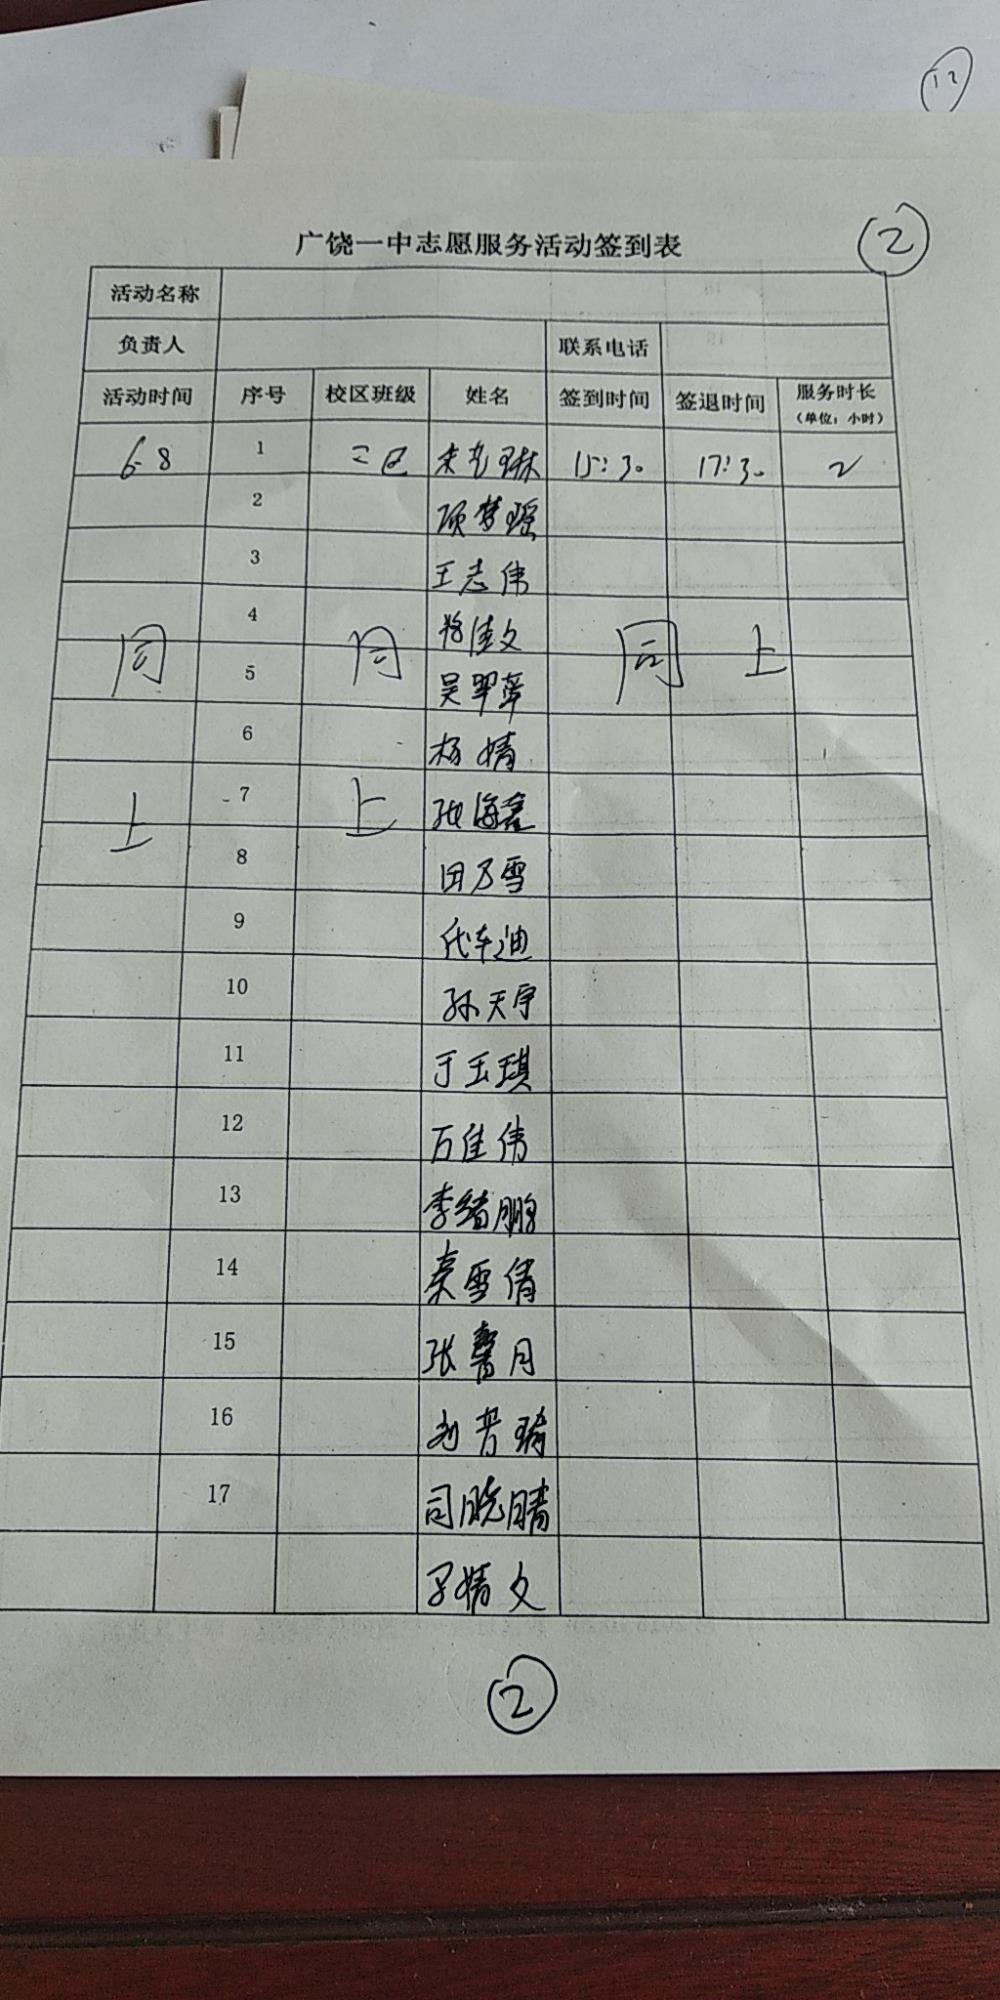 12
广饶一中志愿服务活动签到表 ②
活动名称
负责人 联系电话
活动时间 序号 校区班级 姓名 签到时间 签退时间 服务时长
(单位:小时)
6-8 1 二区 琳 15:30 17:30 2
2 项梦瑶
3 王志伟
4 佳文
同 同 同上
5 吴翠萍
6 杨婧
上 上
7 张海鑫
8 田乃雪
9 代车迪
10 孙天宇
11 于玉琪
12 万佳伟
13 李绪鹏
14 秦雪倩
15 张馨月
16 刘普琦
17 司晓晴
婧文
②